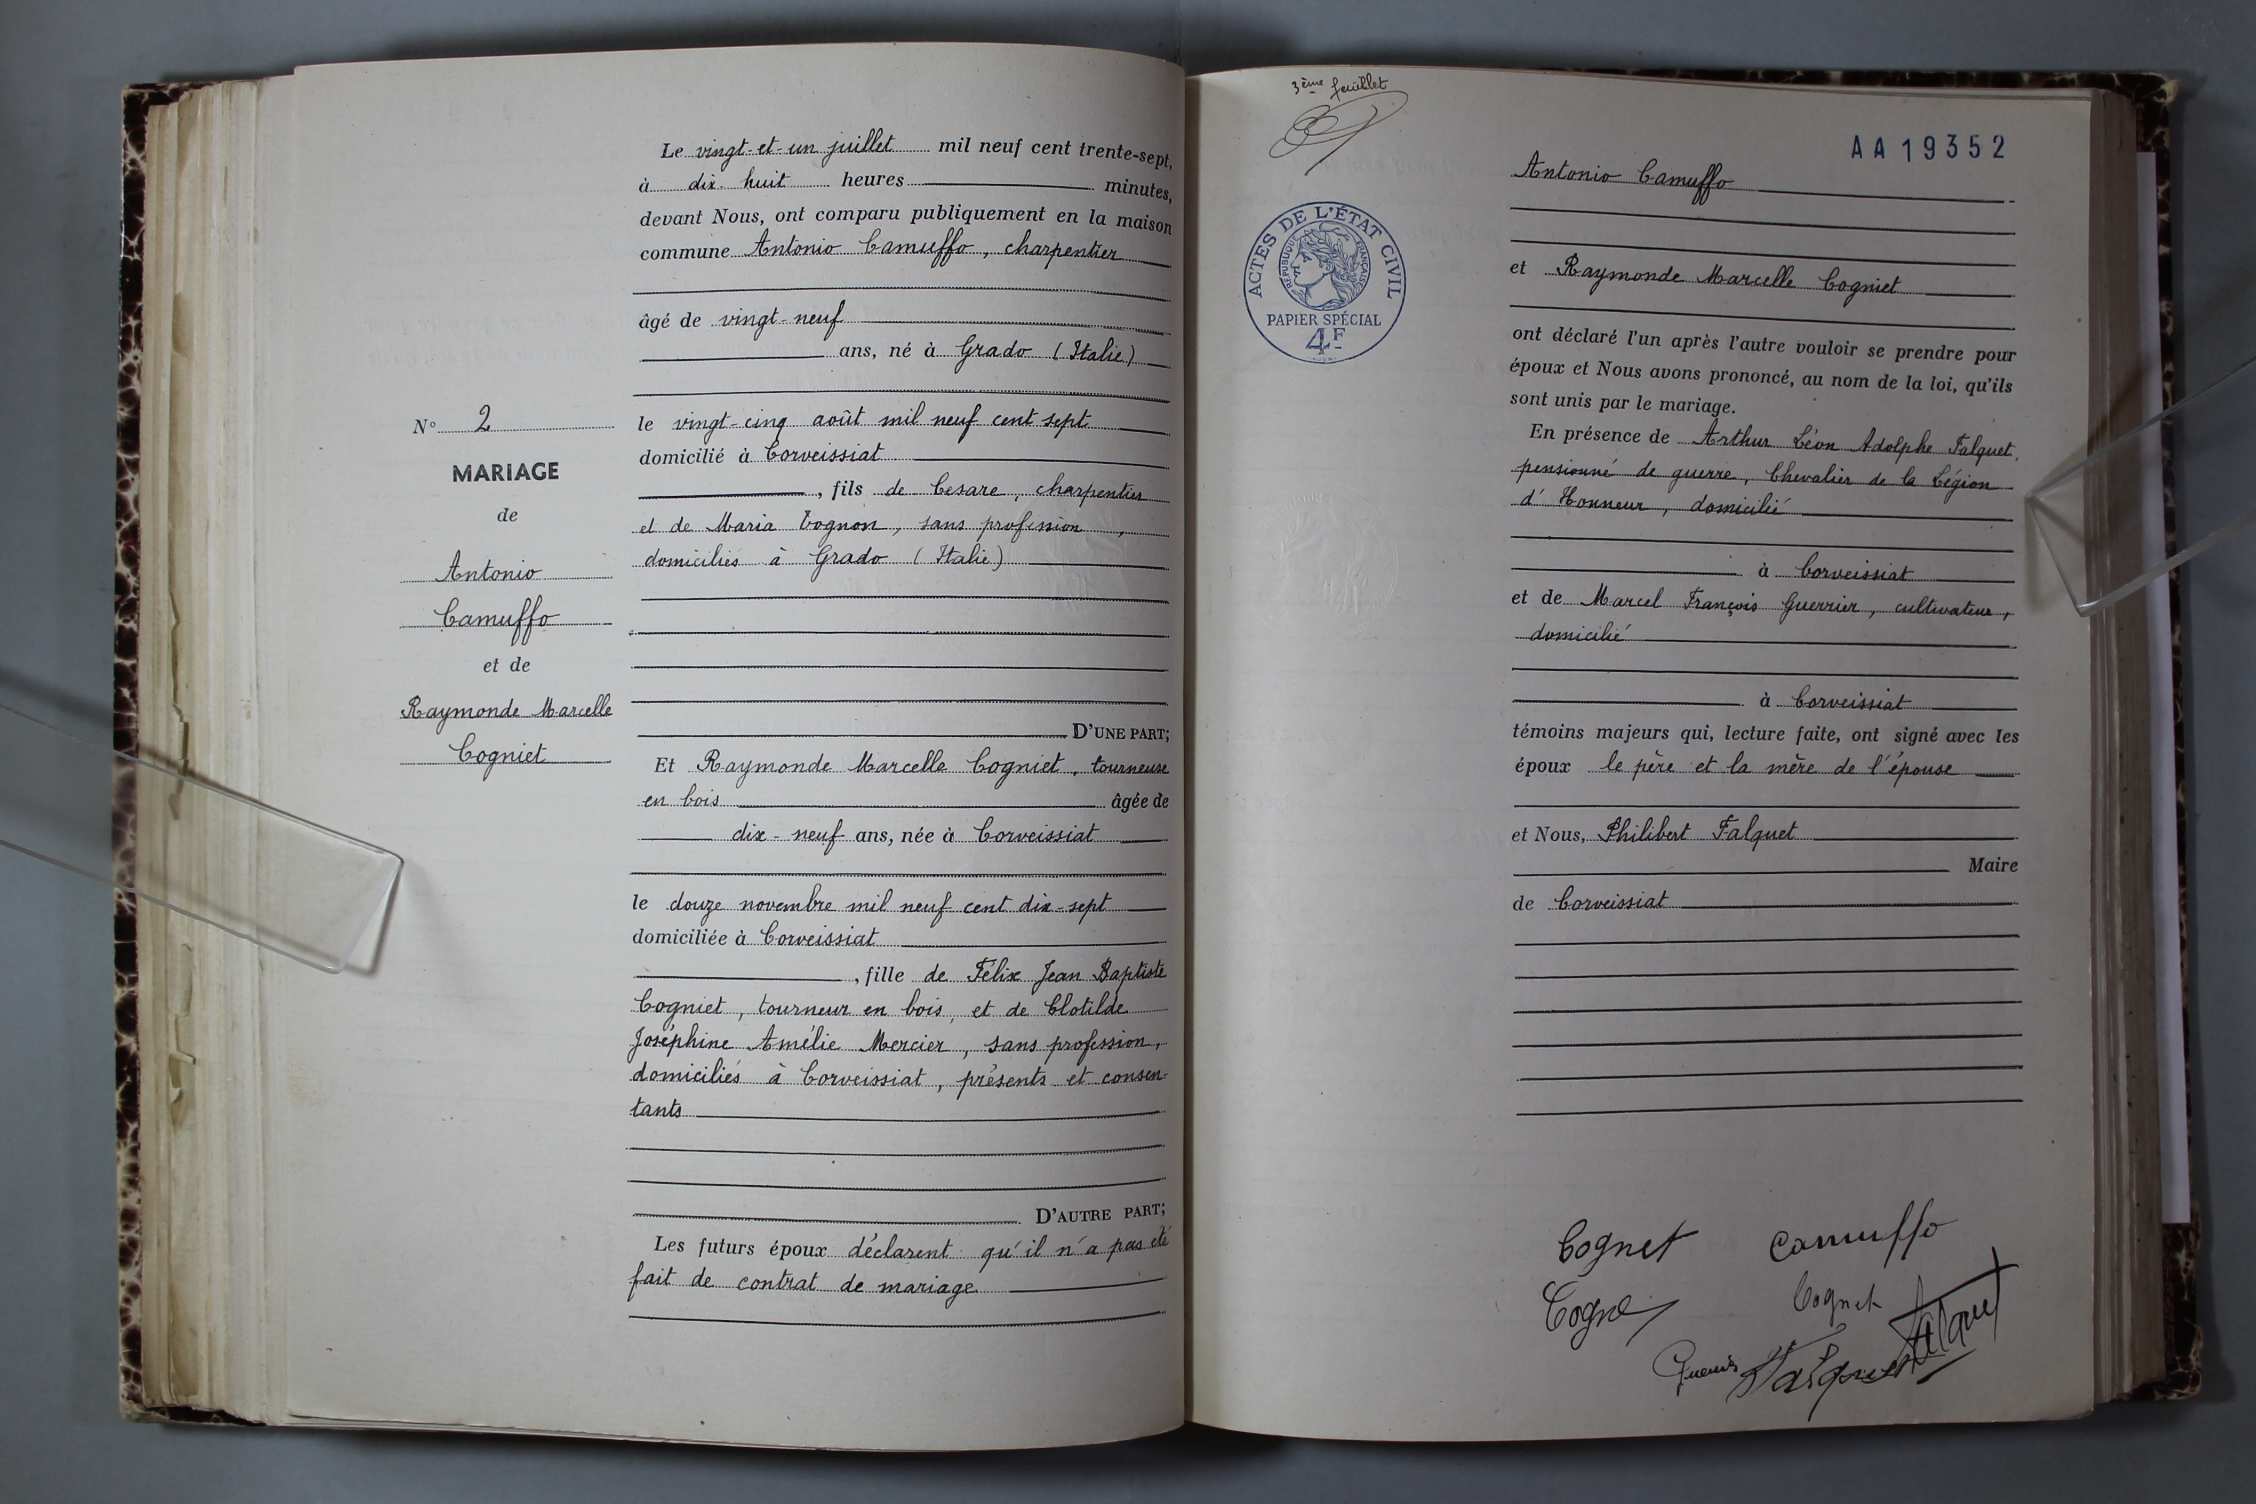 Le vingt-et-un juillet mil neuf cent trente-sept,
à dix-huit heures minutes,
devant Nous, ont comparu publiquement en la maison
commune Antonio Camuffo, charpentier
âgé de vingt-neuf
ans, né à Grado (Italie)
le vingt-cinq août mil neuf cent sept
domicilié à Corveissiat
, fils de Cesare, charpentier
et de Maria Tognon, sans profession,
domiciliés à Grado (Italie)
D'UNE PART;
N° 2
MARIAGE
de
Antonio
Camuffo
et de
Raymonde Marcelle
Cogniet
Et Raymonde Marcelle Cogniet, tourneuse
en bois âgée de
dix-neuf ans, née à Corveissiat
le douze novembre mil neuf cent dix-sept
domiciliée à Corveissiat
, fille de Félix Jean Baptiste
Cogniet, tourneur en bois, et de Clotilde
Joséphine Amélie Mercier, sans profession,
domiciliés à Corveissiat, présents et consen-
tants
D'AUTRE PART;
Les futurs époux déclarent qu'il n'a pas été
fait de contrat de mariage
3ème feuillet
AA19352
ACTES DE L'ÉTAT CIVIL
RÉPUBLIQUE FRANÇAISE
PAPIER SPÉCIAL
4F
Antonio Camuffo
et Raymonde Marcelle Cogniet
ont déclaré l'un après l'autre vouloir se prendre pour
époux et Nous avons prononcé, au nom de la loi, qu'ils
sont unis par le mariage.
En présence de Arthur Léon Adolphe Falquet,
pensionné de guerre, Chevalier de la Légion
d'Honneur, domicilié
à Corveissiat
et de Marcel François Guerrier, cultivateur,
domicilié
à Corveissiat
témoins majeurs qui, lecture faite, ont signé avec les
époux le père et la mère de l'épouse
et Nous, Philibert Falquet
Maire
de Corveissiat
Cognet Camuffo
Cogne Cognet
Falquet
Falquet